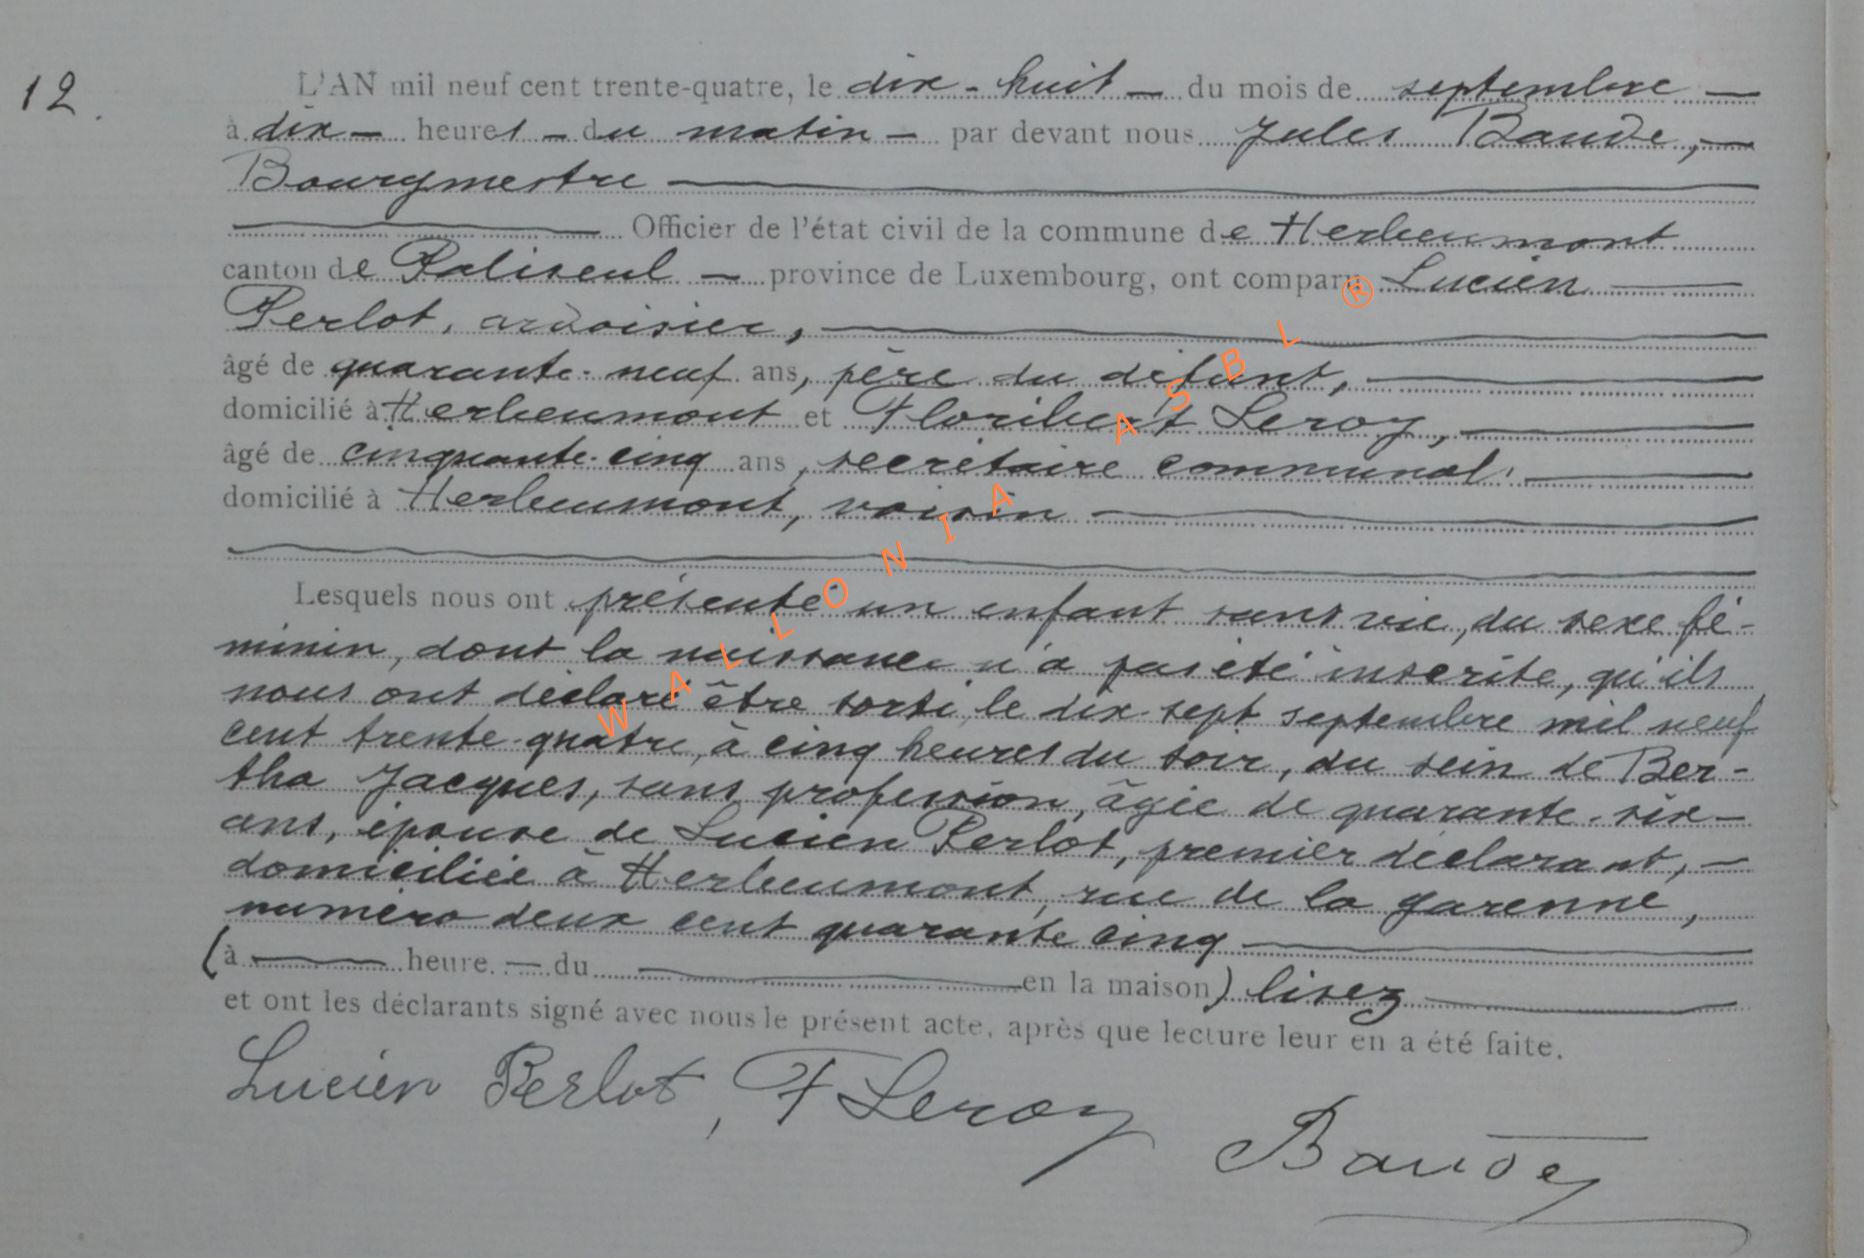 12.
L'AN mil neuf cent trente-quatre, le dix-huit du mois de septembre
à dix heures du matin par devant nous Jules Baude,
Bourgmestre
Officier de l'état civil de la commune de Herbeumont
canton de Paliseul province de Luxembourg, ont comparu Lucien
Perlot, ardoisier,
âgé de quarante-neuf ans, père du défunt,
domicilié à Herbeumont et Floribert Leroy,
âgé de cinquante-cinq ans, secrétaire communal,
domicilié à Herbeumont, voisin
Lesquels nous ont présenté un enfant sans vie, du sexe fé-
minin, dont la naissance n'a pas été inscrite, qu'ils
nous ont déclaré être sorti, le dix-sept septembre mil neuf
cent trente-quatre, à cinq heures du soir, du sein de Ber-
tha Jacques, sans profession, âgée de quarante-six
ans, épouse de Lucien Perlot, premier déclarant,
domiciliée à Herbeumont, rue de la garenne,
numéro deux cent quarante cinq
(à heure du en la maison) lisez
et ont les déclarants signé avec nous le présent acte, après que lecture leur en a été faite.
Lucien Perlot, F Leroy
Baude
WALLONIA ASBL ®